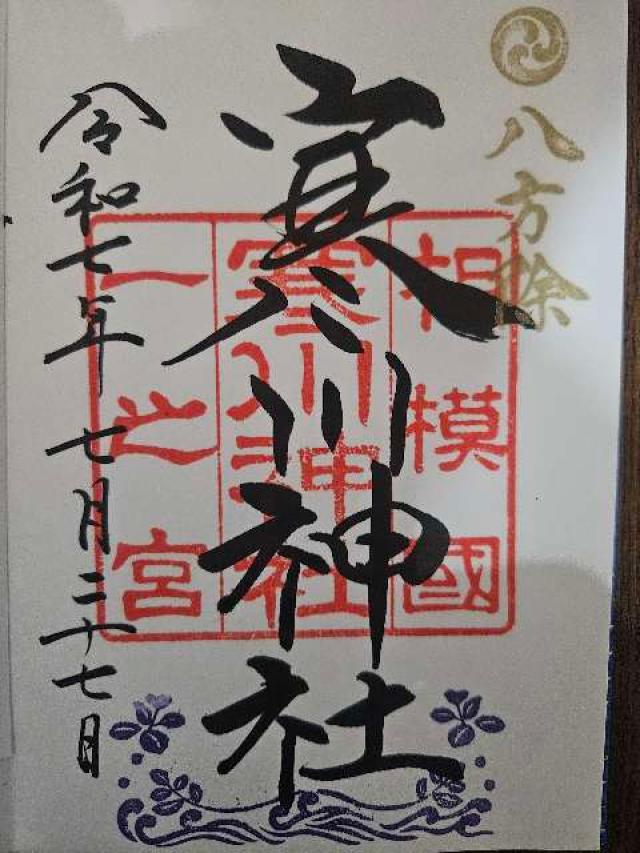 八方除
相模國
寒川神社
一之宮
寒川神社
令和七年七月二十七日